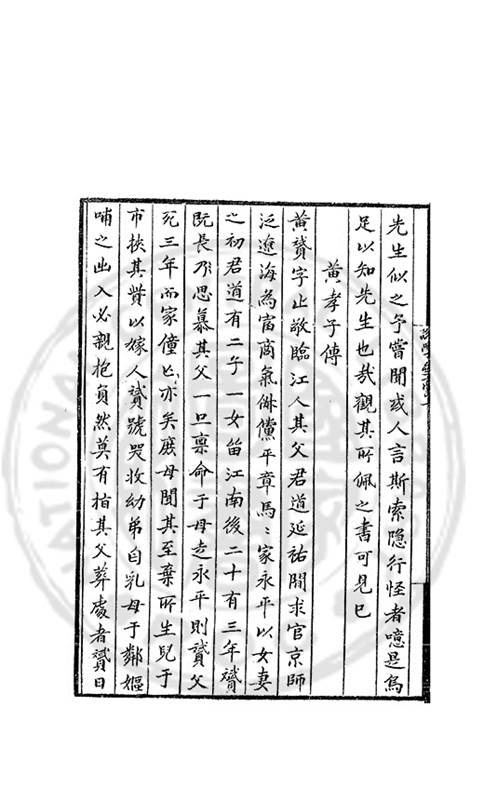 先生似之予嘗聞或人言斯索隐行怪者噫是烏
足以知先生也哉觀其所佩之書可見已
黄孝子傳
黄贇字止敬臨江人其父君道延祐間求官京師
泛遼海為富商氣倅儻平章馬〻家永平以女妻
之初君道有二子一女留江南後二十有三年贇
既長乃思慕其父一旦禀命于母走永平則贇父
死三年而家僮亡亦矣庶母聞其至棄所生兒于
市挾其貲以嫁人贇號哭收幼弟自乳母于鄰嫗
哺之出入必親抱負然莫有指其父葬處者贇日